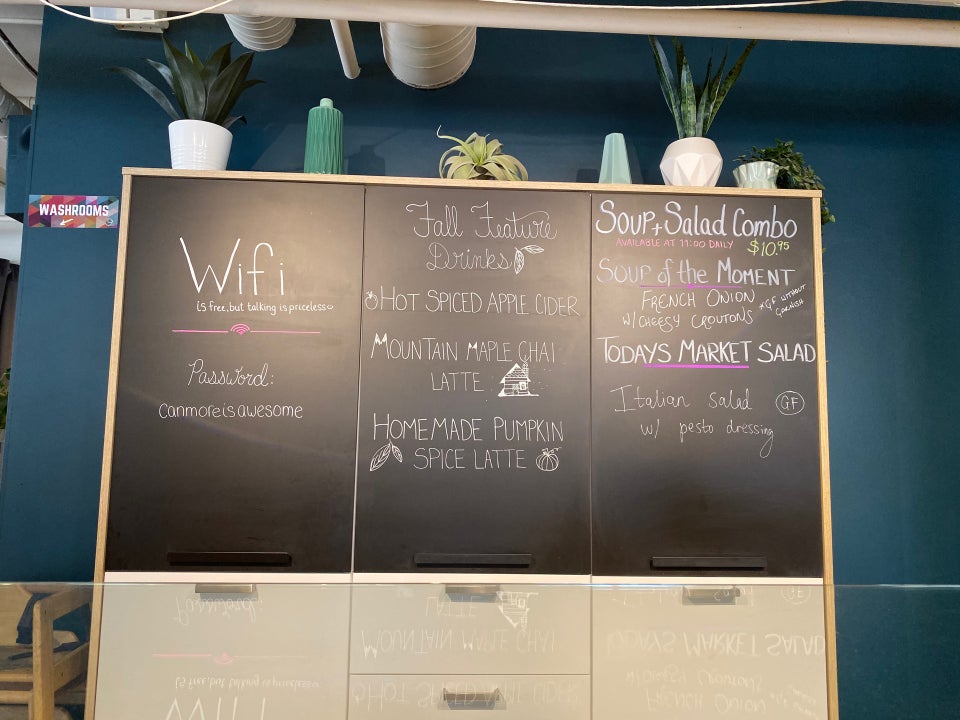 WASHROOMS
Wifi
is free, but talking is priceless
Password:
canmoreisawesome
Fall Feature
Drinks
HOT SPICED APPLE CIDER
MOUNTAIN MAPLE CHAI
LATTE
HOMEMADE PUMPKIN
SPICE LATTE
SOUP + Salad Combo
AVAILABLE AT 11:00 DAILY $10.95
SOUP of the MOMENT
FRENCH ONION
W/ CHEESY CROUTONS
*GF WITHOUT
GARNISH
TODAYS MARKET SALAD
Italian salad GF
w/ pesto dressing